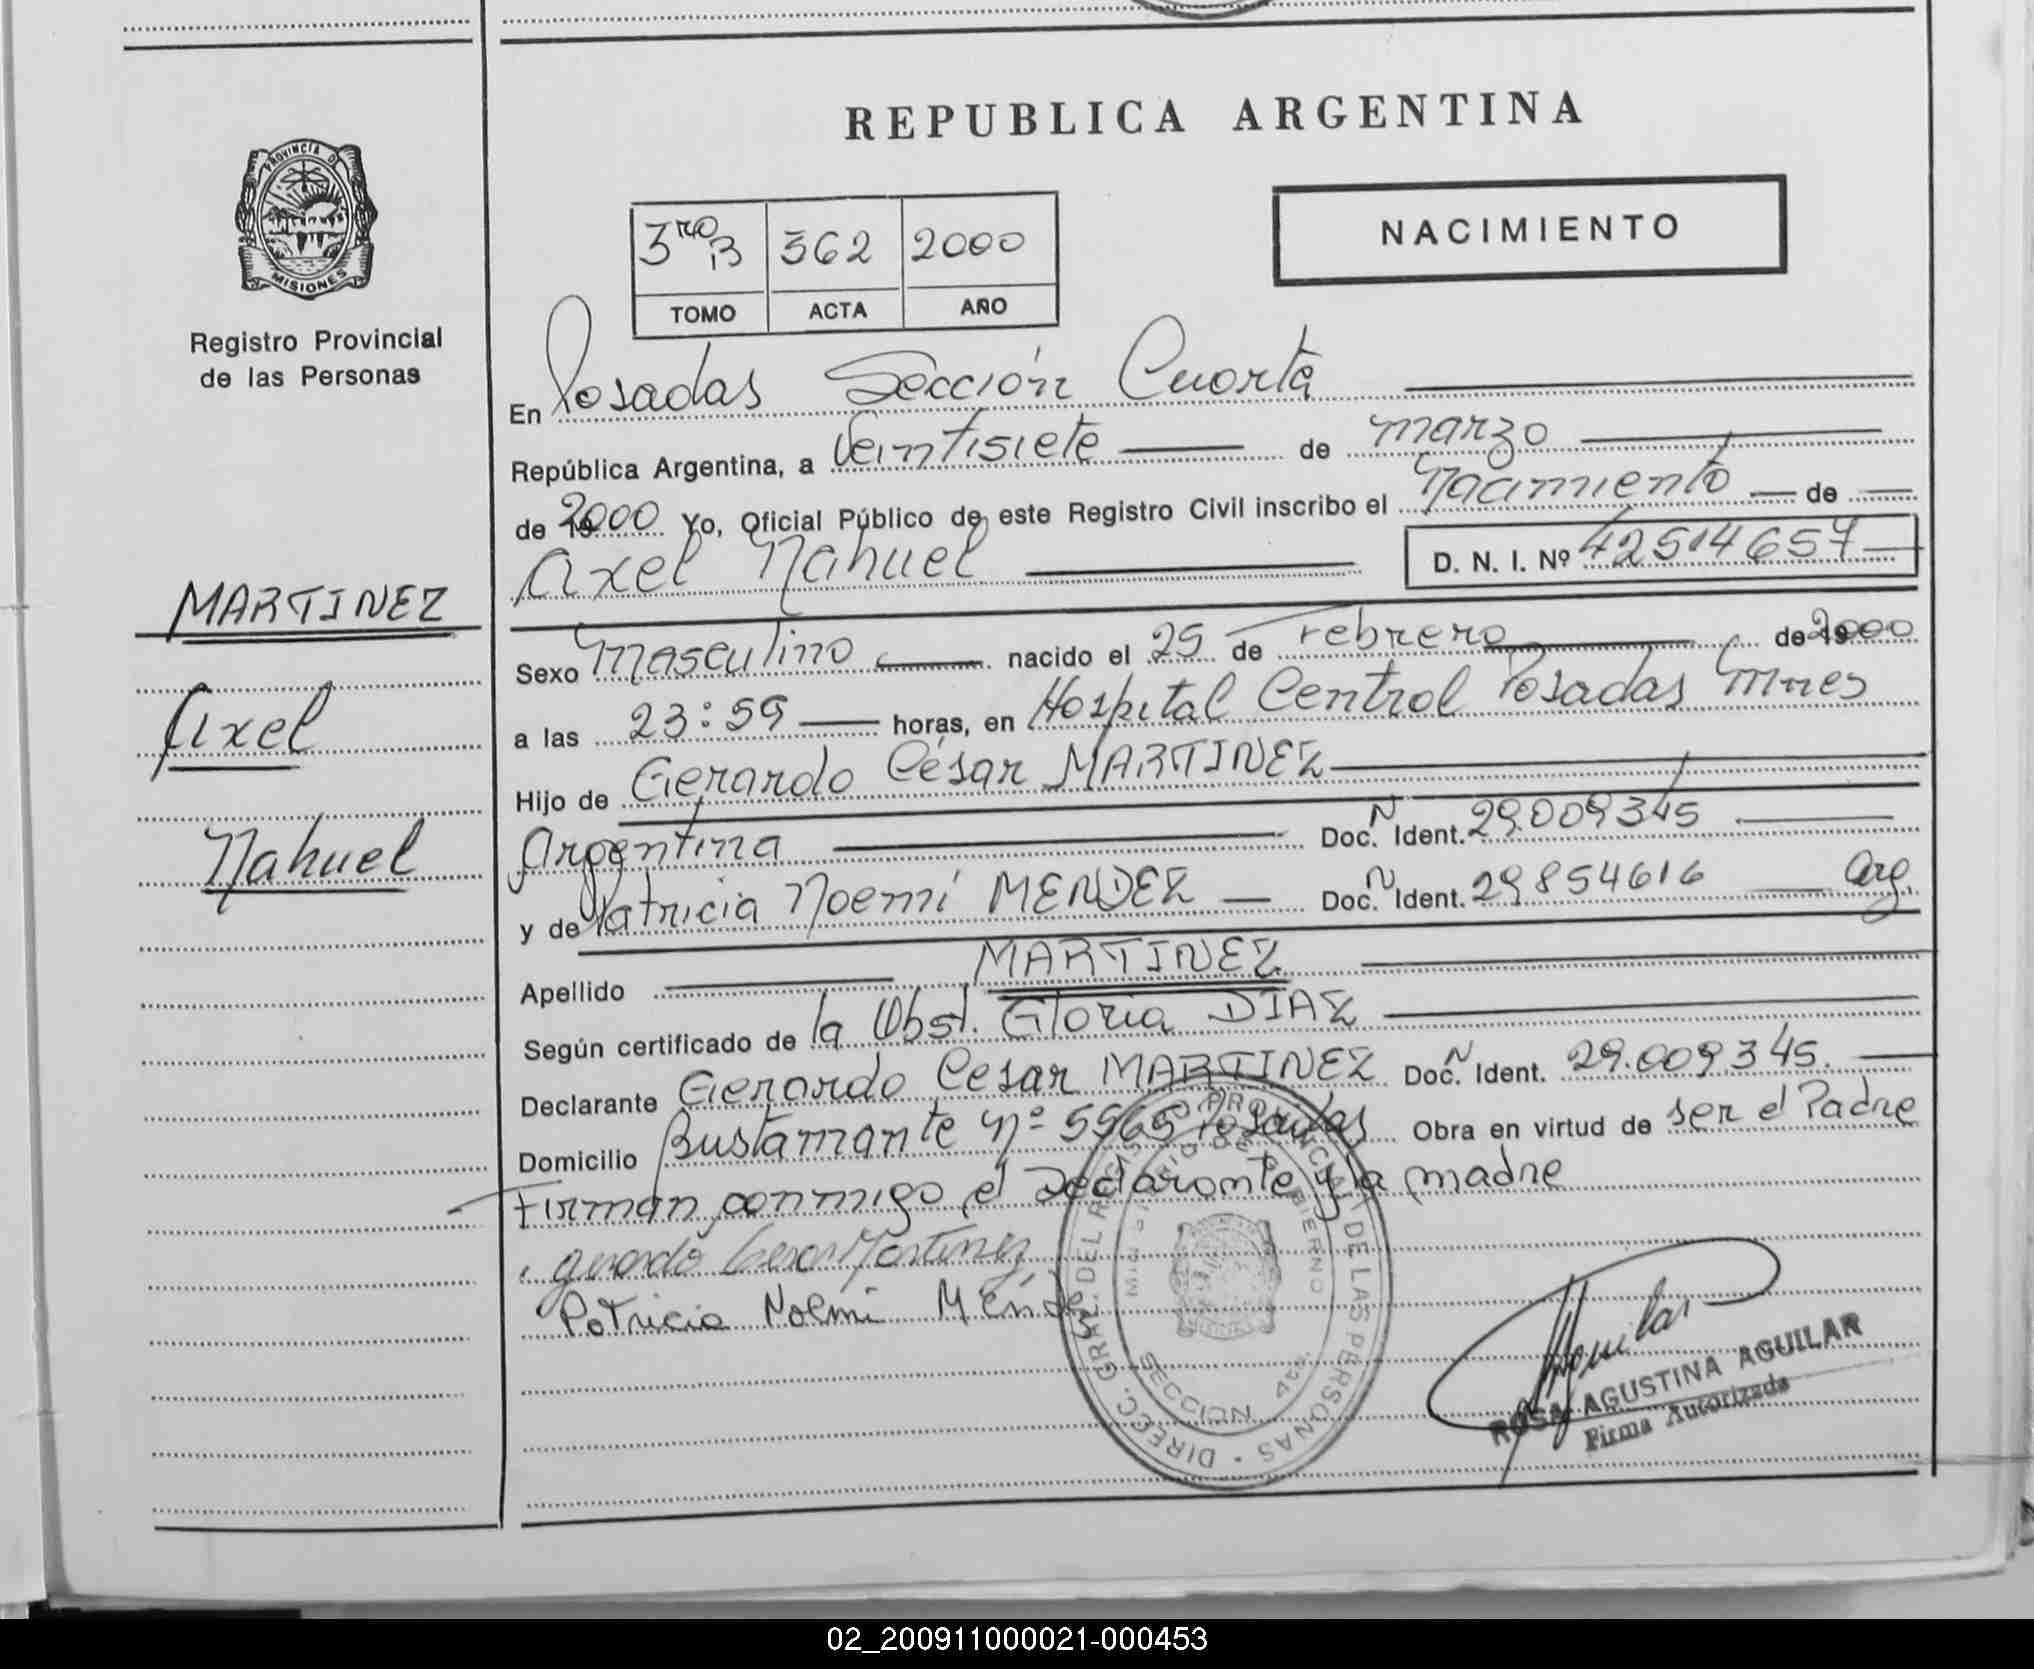 REPUBLICA ARGENTINA
NACIMIENTO
3ro B 362 2000
TOMO ACTA AÑO
PROVINCIA D
MISIONES
Registro Provincial
de las Personas
MARTINEZ
Axel
Nahuel
En Posadas Sección Cuarta
República Argentina, a Veintisiete de marzo
de 2000 Yo, Oficial Público de este Registro Civil inscribo el Nacimiento de
Axel Nahuel D. N. I. Nº 42514657
Sexo Masculino nacido el 25 de Febrero de 2000
a las 23:59 horas, en Hospital Central Posadas Mnes
Hijo de Gerardo César MARTINEZ
Argentina Doc. N Ident. 29.009345
y de Patricia Noemí MENDEZ Doc. N Ident. 29854616 Arg.
Apellido MARTINEZ
Según certificado de la Obst. Gloria DIAZ
Declarante Gerardo Cesar MARTINEZ Doc. N Ident. 29.009.345.
Domicilio Bustamante Nº 5565 Posadas Obra en virtud de ser el Padre
Firman conmigo el Declarante y la madre
gerardo Cesar Martinez
Patricia Noemi Méndez
DIREC. GRAL. DEL REGISTRO PROVINCIAL DE LAS PERSONAS
MINISTERIO DE GOBIERNO
SECCION 4ta.
Aguilar
ROSA AGUSTINA AGUILAR
Firma Autorizada
02_200911000021-000453